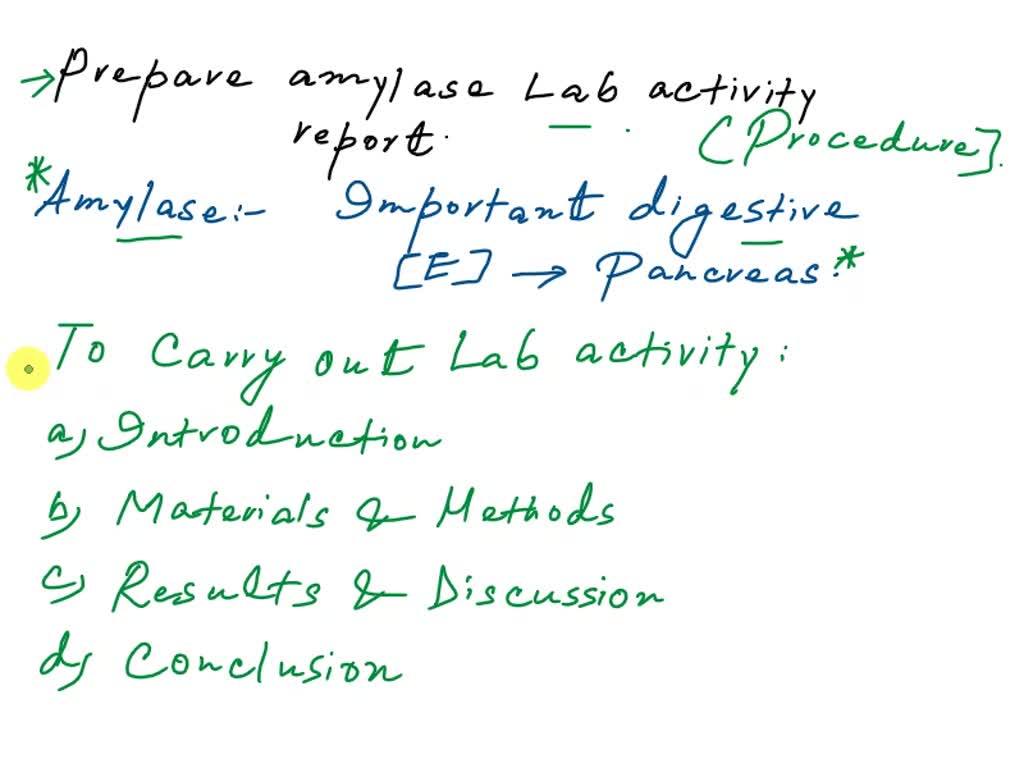 → Prepare amylase Lab activity
report. (Procedure].
*Amylase:- Important digestive
[E] → Pancreas.*
To Carry out Lab activity:
a) Introduction
b) Materials & Methods
c) Results & Discussion
d) Conclusion